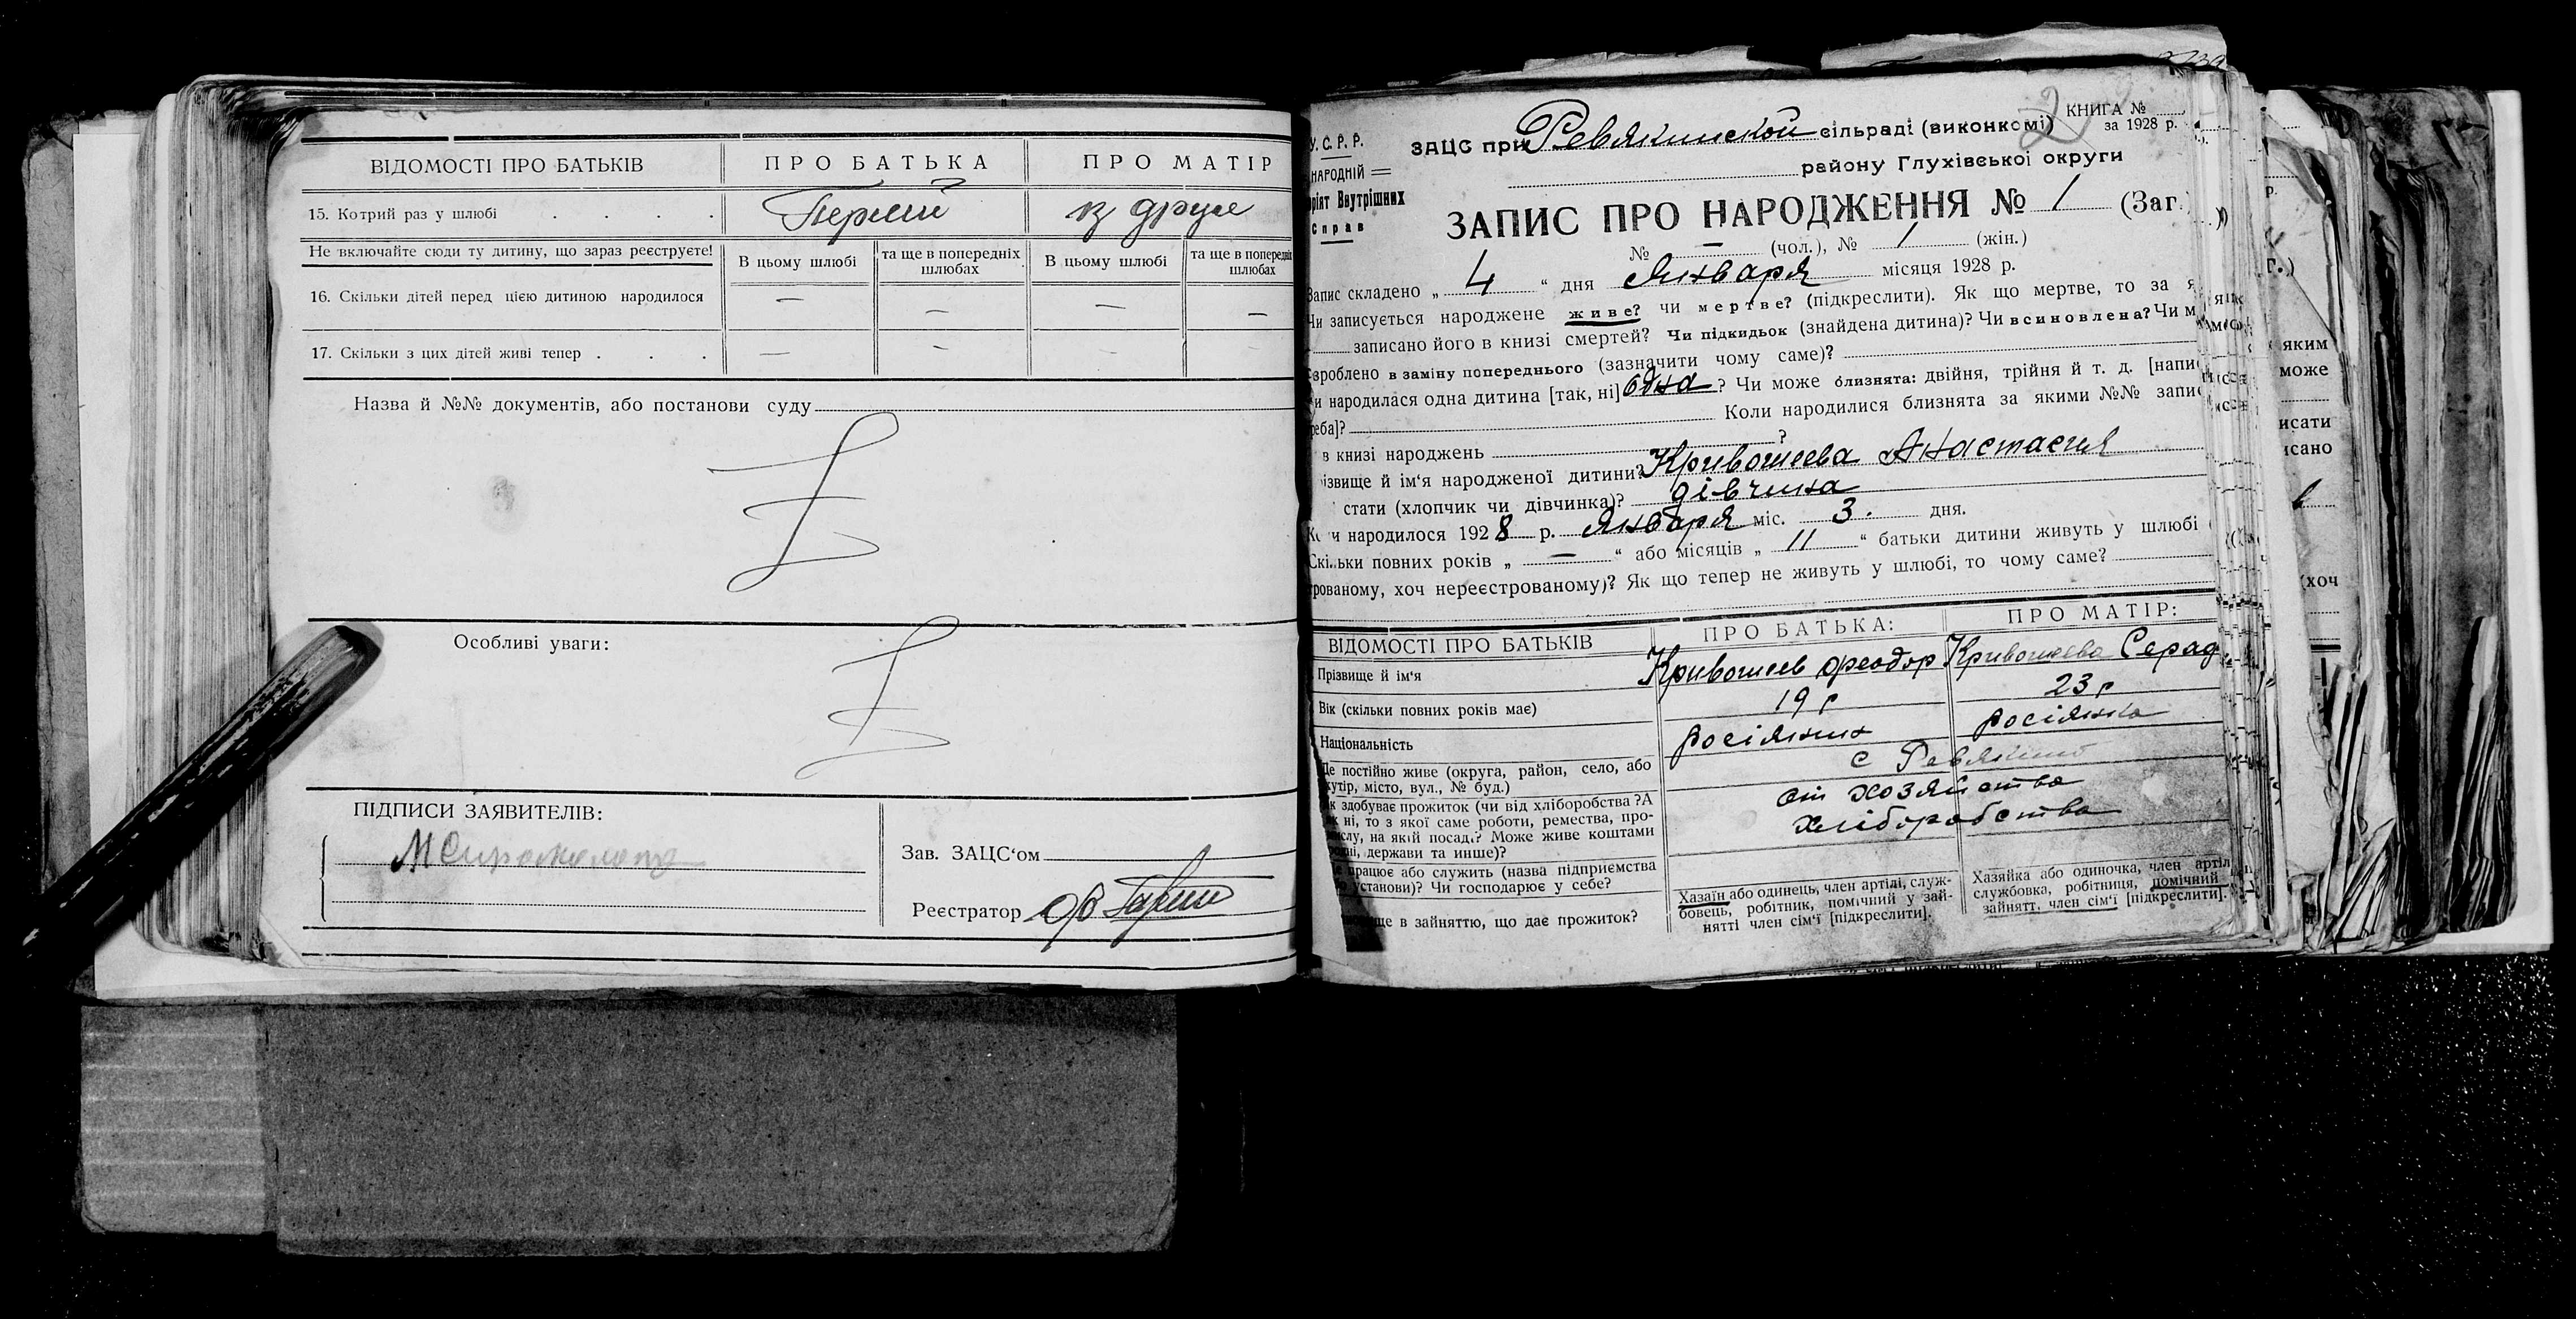 ВІДОМОСТІ ПРО БАТЬКІВ ПРО БАТЬКА ПРО МАТІР
15. Котрий раз у шлюбі . . . .
Не включайте сюди ту дитину, що зараз реєструєте! В цьому шлюбі та ще в попередніх шлюбах В цьому шлюбі та ще в попередніх шлюбах
16. Скільки дітей перед цією дитиною народилося — — — —
17. Скільки з цих дітей живі тепер . . . — — — —
Назва й №№ документів, або постанови суду
Особливі уваги:
ПІДПИСИ ЗАЯВИТЕЛІВ:
Зав. ЗАЦС‘ом
Реєстратор
КНИГА №
за 1928 р.
У.С.Р.Р.
НАРОДНІЙ
Внутрішних
Справ
ЗАЦС при Ревякинской сільраді (виконкомі)
району Глухівської округи
ЗАПИС ПРО НАРОДЖЕННЯ № 1 (Заг.)
№ — (чол.), № 1 (жін.)
Запис складено „ 4 “ дня Января місяця 1928 р.
Чи записується народжене живе? чи мертве? (підкреслити). Як що мертве, то за
записано його в книзі смертей? Чи підкидьок (знайдена дитина)? Чи всиновлена? Чи
зроблено в заміну попереднього (зазначити чому саме)?
Чи народилася одна дитина [так, ні] одна ? Чи може близнята: двійня, трійня й т. д.
Коли народилися близнята за якими №№
в книзі народжень ?
ім‘я народженої дитини? Кривошеева Анастасия
стати (хлопчик чи дівчинка)? дівчина
Коли народилося 1928 р. Января міс. 3. дня.
Скільки повних років „ — “ або місяців „ 11 “ батьки дитини живуть у шлюбі
хоч нереєстрованому)? Як що тепер не живуть у шлюбі, то чому саме?
ВІДОМОСТІ ПРО БАТЬКІВ ПРО БАТЬКА: ПРО МАТІР:
Прізвище й ім‘я Кривошеев Феодор Кривошеева
Вік (скільки повних років має) 19 р 23 р
Національність росіянин росіянка
Де постійно живе (округа, район, село, або
хутір, місто, вул., № буд.) с Ревякино
Як здобуває прожиток (чи від хліборобства? А
ні, то з якої саме роботи, ремества, про-
на якій посаді? Може живе коштами
держави та инше)? от хозяйства
хліборобства
працює або служить (назва підприємства
установи)? Чи господарює у себе?
в зайняттю, що дає прожиток?
Хазаїн або одинець, член артілі, служ-
бовець, робітник, помічний у зай-
нятті член сім‘ї [підкреслити].
Хазяйка або одиночка, член
службовка, робітниця, помічний
зайнятт. член сім‘ї [підкреслити].